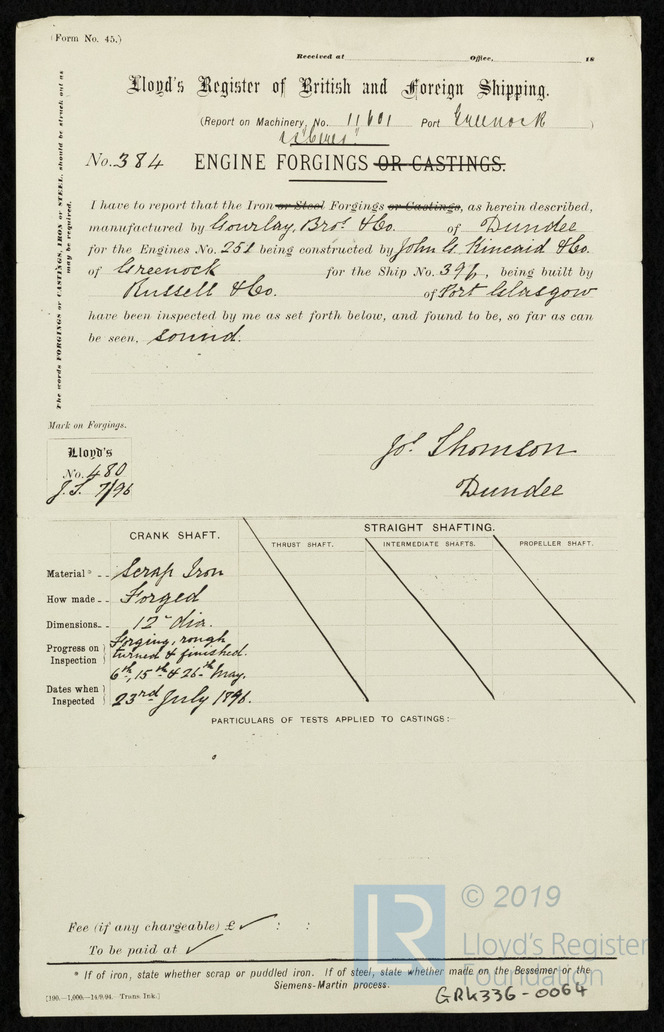 (Form No. 45.)
Received at Office, 18
Lloyd's Register of British and Foreign Shipping.
(Report on Machinery, No. 11601 Port Greenock )
No. 384 ENGINE FORGINGS OR CASTINGS.
The words FORGINGS or CASTINGS, IRON or STEEL, should be struck out as may be required.
I have to report that the Iron or Steel Forgings or Castings, as herein described,
manufactured by Gourlay, Bros. & Co. of Dundee
for the Engines No. 251 being constructed by John G. Kincaid & Co.
of Greenock for the Ship No. 396, being built by
Russell & Co. of Port Glasgow
have been inspected by me as set forth below, and found to be, so far as can
be seen, sound.
Mark on Forgings.
Lloyd's
No. 480
J.T. 7/96
Jos. Thomson
Dundee
CRANK SHAFT. STRAIGHT SHAFTING.
THRUST SHAFT. INTERMEDIATE SHAFTS. PROPELLER SHAFT.
Material* Scrap Iron
How made Forged
Dimensions 12" dia.
Progress on Inspection } Forging, rough
turned & finished.
6th, 15th & 26th May.
Dates when Inspected } 23rd July 1896.
PARTICULARS OF TESTS APPLIED TO CASTINGS:-
Fee (if any chargeable) £ ✓ : :
To be paid at ✓
* If of iron, state whether scrap or puddled iron. If of steel, state whether made on the Bessemer or the
Siemens-Martin process.
[100.—1,000.—14/9/94. Trans. Ink.]
GRK336-0064
LR
© 2019
Lloyd's Register
Foundation